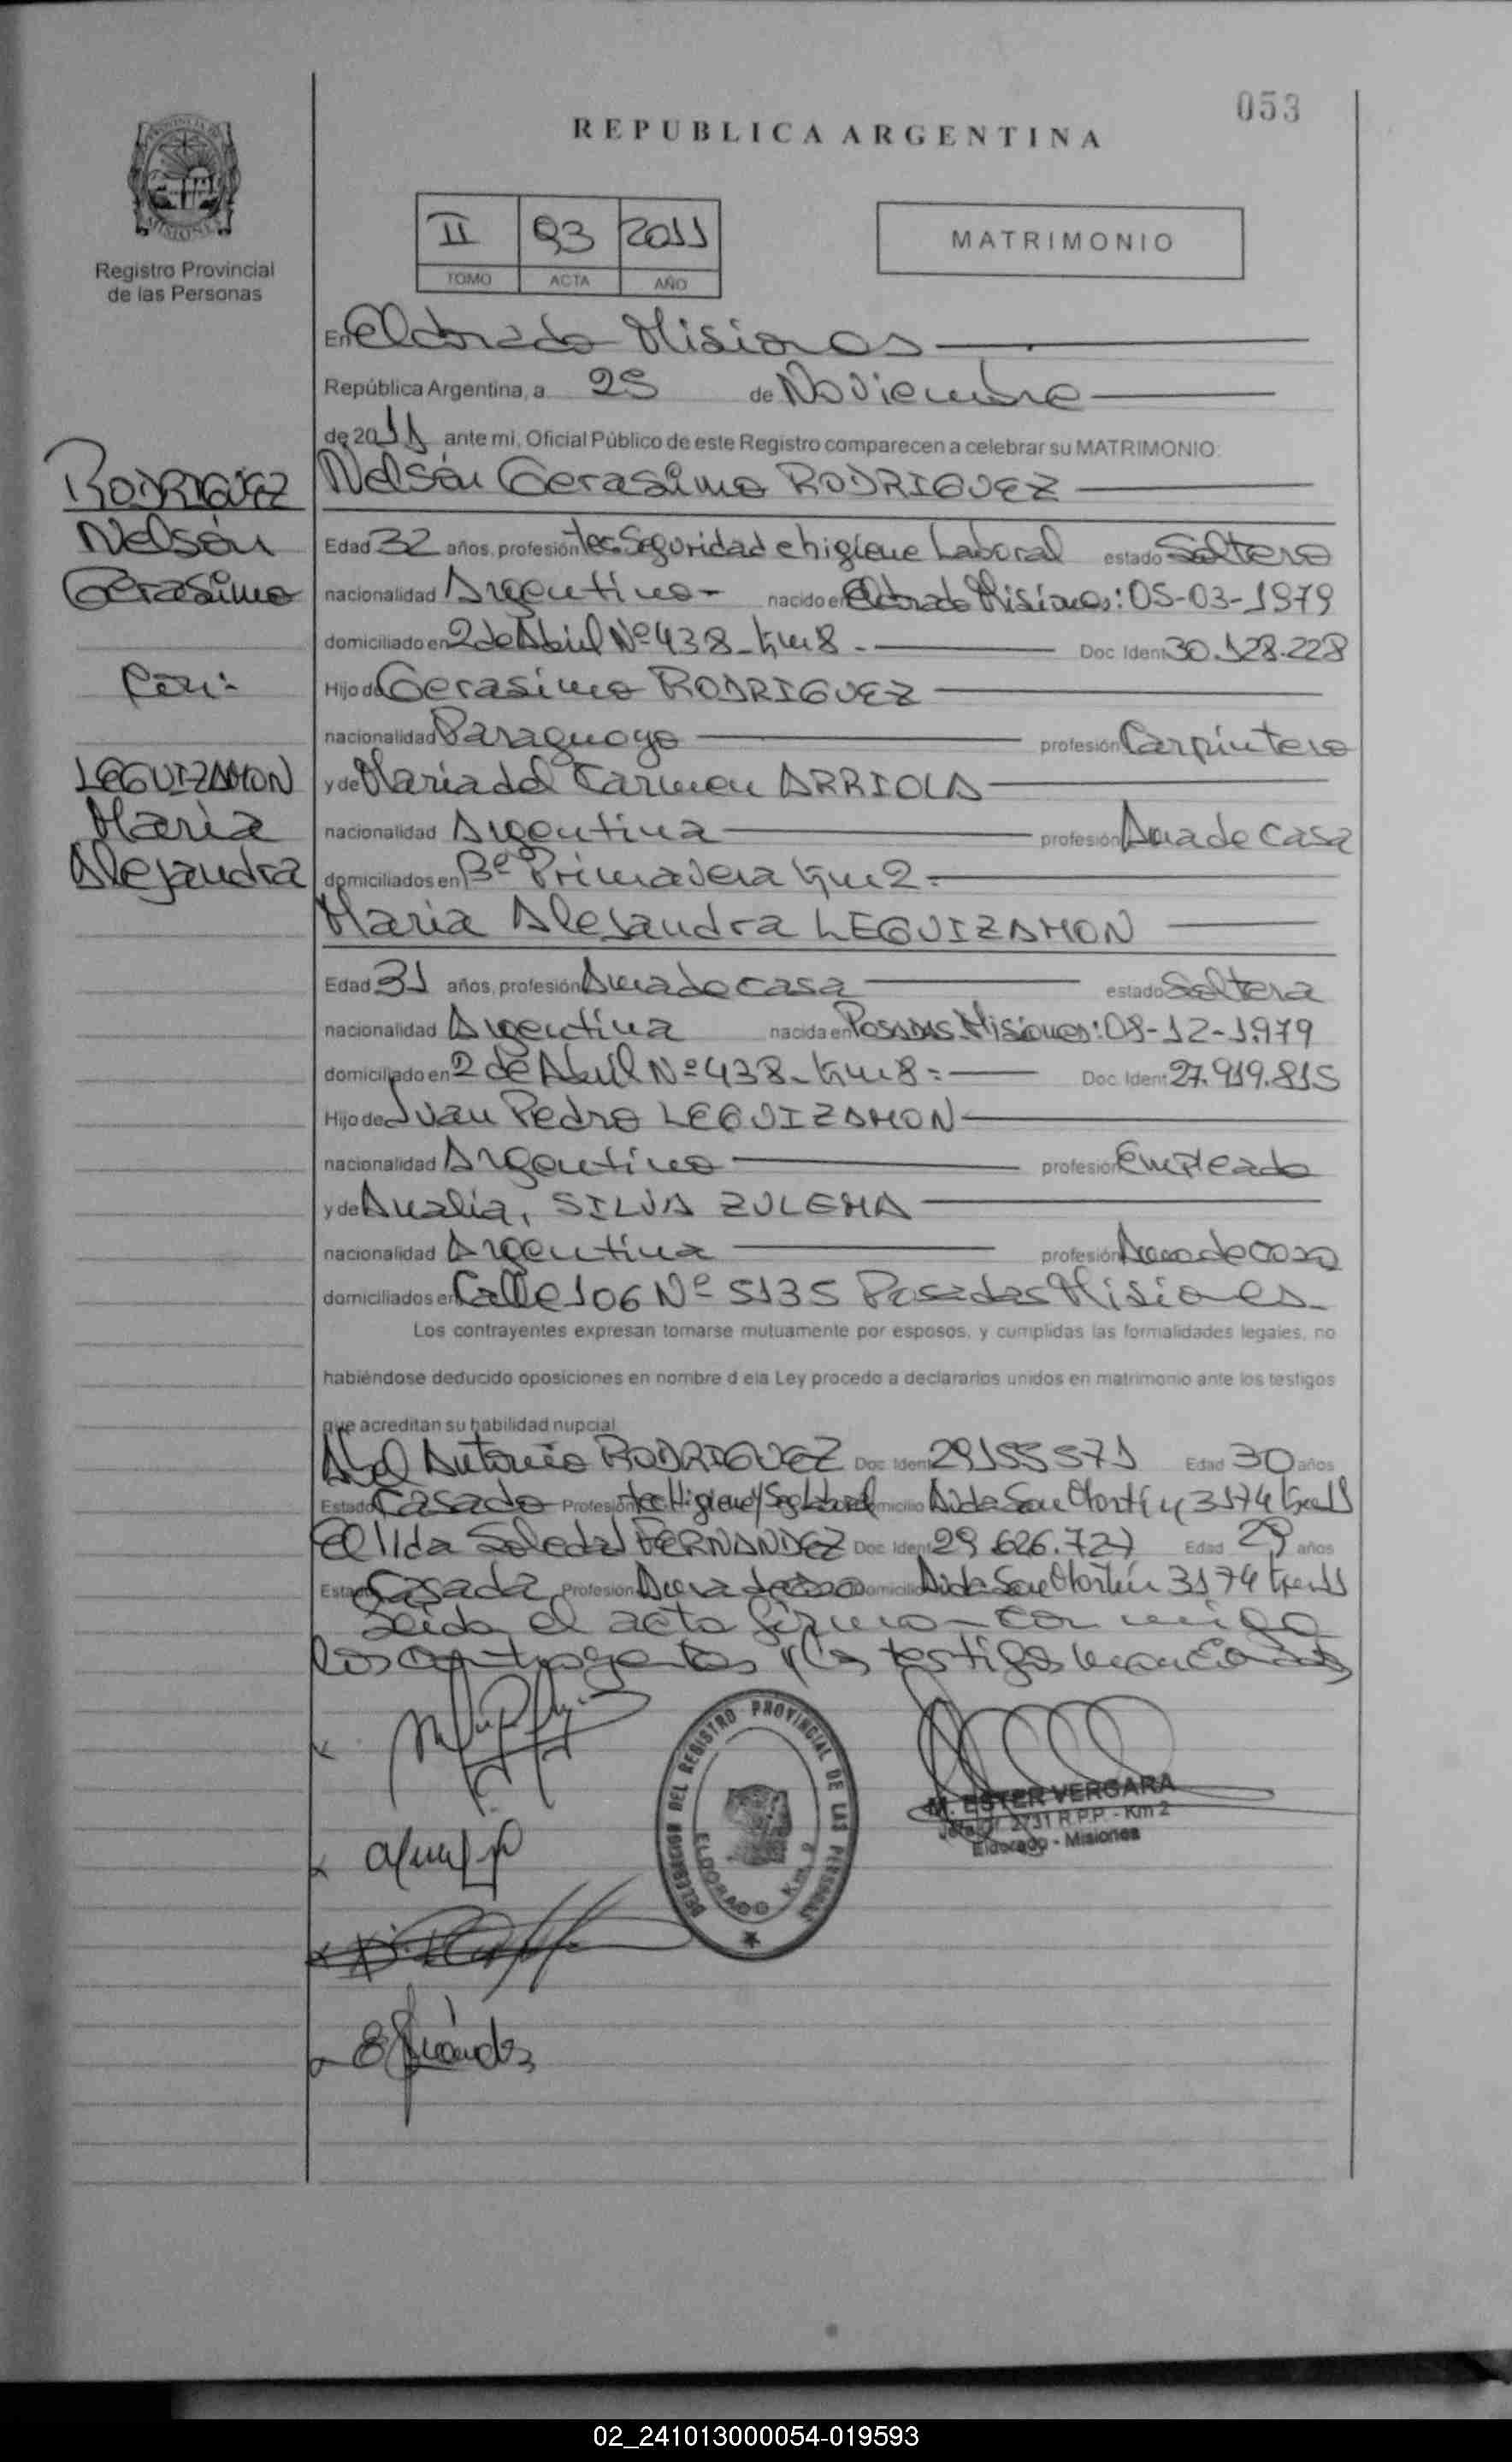 053
REPUBLICA ARGENTINA
II 93 2011
TOMO ACTA AÑO
MATRIMONIO
Registro Provincial
de las Personas
En Eldorado Misiones
República Argentina, a 25 de Noviembre
de 2011 ante mi, Oficial Público de este Registro comparecen a celebrar su MATRIMONIO:
RODRIGUEZ
Nelsón
Gerasimo
Con:
LEGUIZAMON
Maria
Alejandra
Nelsón Gerasimo RODRIGUEZ
Edad 32 años, profesión Tec. Seguridad e higiene Laboral estado Soltero
nacionalidad Argentino- nacido en Eldorado Misiones: 05-03-1979
domiciliado en 2 de Abril Nº 438-Km 8- Doc. Ident 30.128.228
Hijo de Gerasimo RODRIGUEZ
nacionalidad Paraguayo profesión Carpintero
y de Maria del Carmen ARRIOLA
nacionalidad Argentina profesión Ama de Casa
domiciliados en Bº Primavera Km 2.
Maria Alejandra LEGUIZAMON
Edad 31 años, profesión Ama de casa estado Soltera
nacionalidad Argentina nacida en POSADAS. Misiones: 08-12-1.979
domiciliado en 2 de Abril Nº 438-Km 8= Doc. Ident 27.919.815
Hijo de Juan Pedro LEGUIZAMON
nacionalidad Argentino profesión Empleado
y de Analia, SILVA ZULEMA
nacionalidad Argentina profesión Ama de casa
domiciliados en Calle 106 Nº 5135 Posadas Misiones.
Los contrayentes expresan tomarse mutuamente por esposos, y cumplidas las formalidades legales, no
habiéndose deducido oposiciones en nombre d ela Ley procedo a declararlos unidos en matrimonio ante los testigos
que acreditan su habilidad nupcial
Abel Antonio RODRIGUEZ Doc. Ident 29155571 Edad 30 años
Estado Casado Profesión Tec. Higiene y Seg. Laboral Domicilio Avda San Martín 3174 Km 11
Elida Soledad FERNANDEZ Doc. Ident 29.626.727 Edad 29 años
Estado Casada Profesión Ama de casa Domicilio Avda San Martín 3174 Km 11
Leida el acta firman conmigo
los contrayentes y los testigos mencionados
DELEGACION DEL REGISTRO PROVINCIAL DE LAS PERSONAS
ELDORADO Km. 2
M. ESTER VERGARA
2731 R.P.P. - Km 2
Eldorado - Misiones
02_241013000054-019593